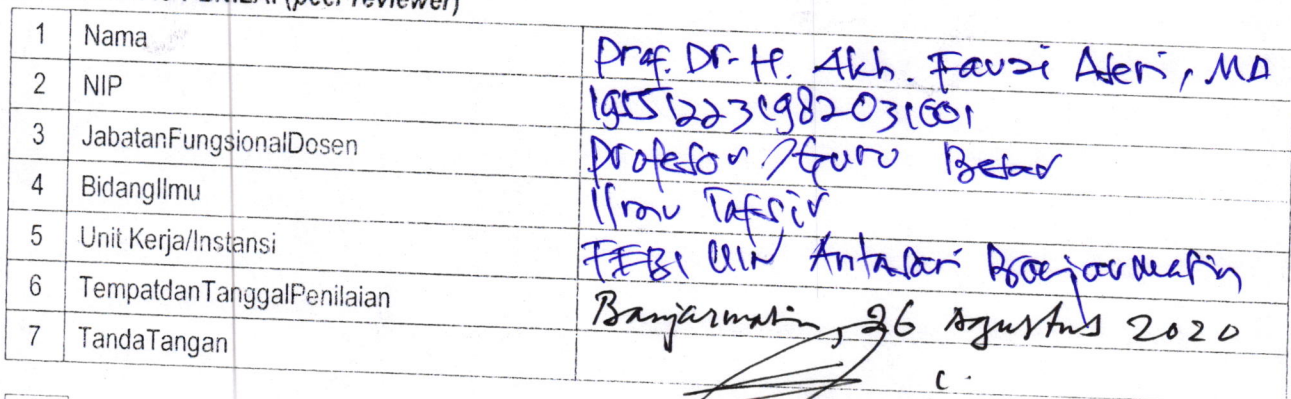 PENILAI (peer reviewer)
1 Nama Prof. Dr. H. Akh. Fauzi Aseri, MA
2 NIP 195512231982031001
3 JabatanFungsionalDosen Profesor / Guru Besar
4 BidangIlmu Ilmu Tafsir
5 Unit Kerja/Instansi FEBI UIN Antasari Banjarmasin
6 TempatdanTanggalPenilaian Banjarmasin, 26 Agustus 2020
7 TandaTangan